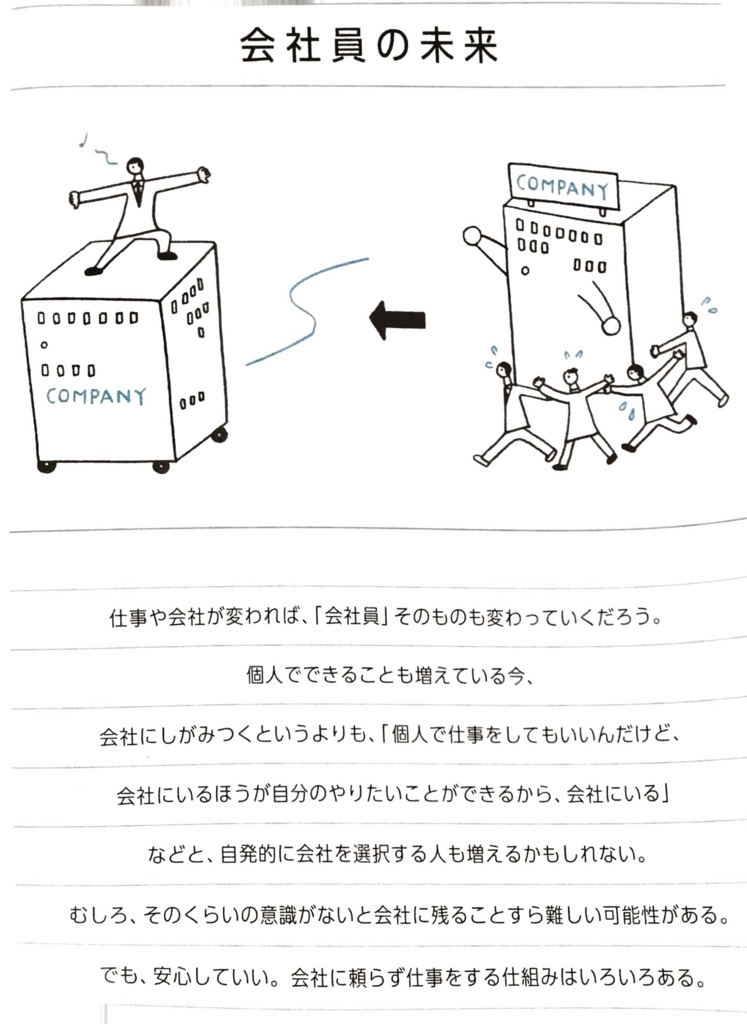 会社員の未来
COMPANY
COMPANY
仕事や会社が変われば、「会社員」そのものも変わっていくだろう。
個人でできることも増えている今、
会社にしがみつくというよりも、「個人で仕事をしてもいいんだけど、
会社にいるほうが自分のやりたいことができるから、会社にいる」
などと、自発的に会社を選択する人も増えるかもしれない。
むしろ、そのくらいの意識がないと会社に残ることすら難しい可能性がある。
でも、安心していい。会社に頼らず仕事をする仕組みはいろいろある。